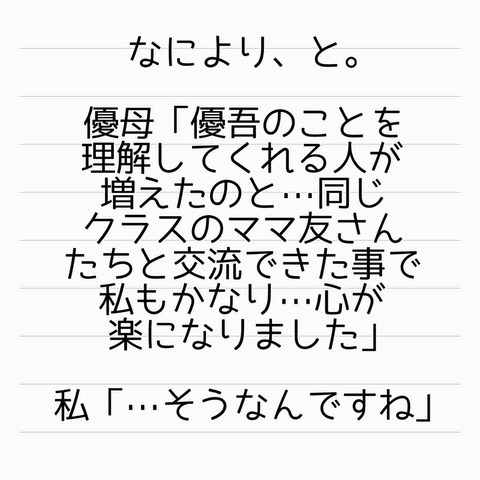 なにより、と。
優母「優吾のことを
理解してくれる人が
増えたのと…同じ
クラスのママ友さん
たちと交流できた事で
私もかなり…心が
楽になりました」
私「…そうなんですね」